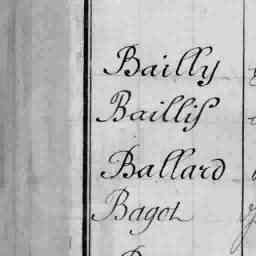 Bailly
Baillis
Ballard
Bagot